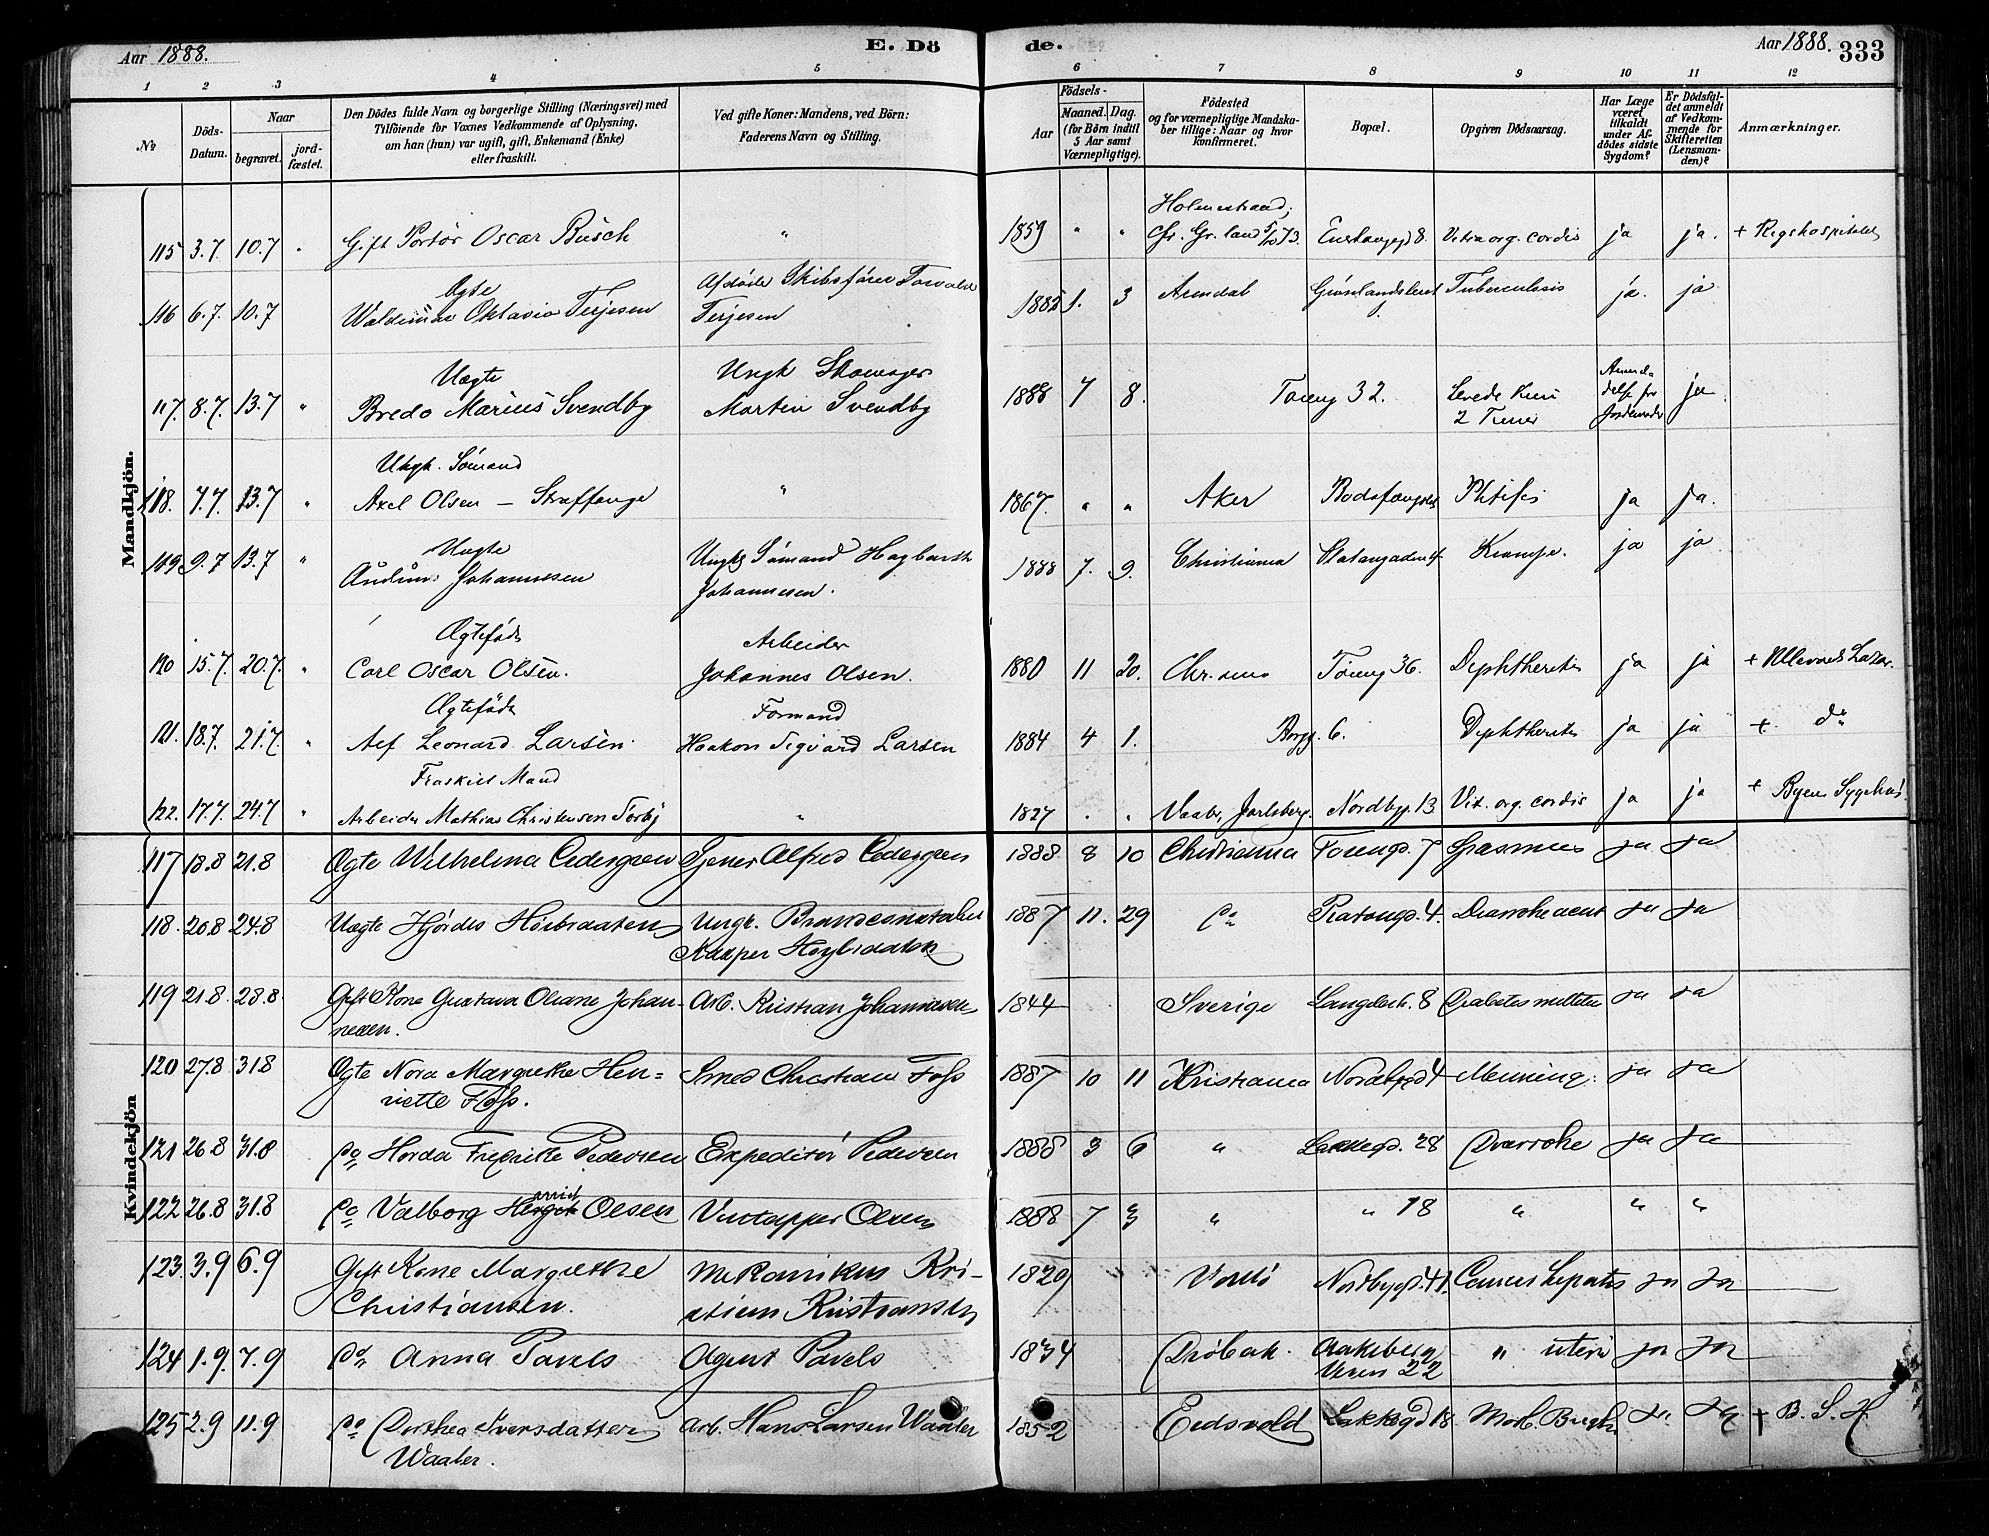 Aar 1888. E. Dö de. Aar 1888. 333
1 2 3 4 5 6 7 8 9 10 11 12
No Döds-Datum. Naar begravet. jordfæstet.
Den Dödes fulde Navn og borgerlige Stilling (Næringsvei) med
Tilföiende for Voxnes Vedkommende af Oplysning,
om han (hun) var ugift, gift, Enkemand (Enke)
eller fraskilt.
Ved gifte Koner: Mandens, ved Börn:
Faderens Navn og Stilling.
Födsels-
Aar Maaned. Dag.
(for Börn indtil
5 Aar samt
Værnepligtige).
Födested
og for værnepligtige Mandskaber tillige: Naar og hvor
konfirmeret.
Bopæl.
Opgiven Dödsaarsag.
Har Læge
været
tilkaldt
under Afdödes sidste
Sygdom?
Er Dödsfaldet anmeldt
af Vedkommende for
Skifteretten
(Lensmanden)?
Anmærkninger.
Mandkjön.
Holmestrand;
115 3.7. 10.7 " Gift Portør Oscar Busch " 1859 " " Chr. Gr. land 5/10 73. 8. Vit. org. cordis ja ja. + Rigshospitalet
Ægte Afdøde Skibsfører Torvald
116 6.7. 10.7 Waldemar Oktavio Terjesen Terjesen 1882 1. 3 Arendal Grønlandsleret Tuberculosis ja. ja
Uægte Ungk
117. 8.7. 13.7 " Bredo Marius Svendby Martin Svendby 1888 7 8. Tøieng 32. Levede kun 2 Timer ja
Ungk. Sømand
118. 7.7. 13.7 " Axel Olsen – Straffange " 1867. " " Aker Bodsfængslet Phtisis ja ja.
Uægte
119 9.7 13.7 " Johannesen Ungk Sømand Hagbarth
Johannesen. 1888 7. 9. Christiania Krampe. ja ja
Ægtefødt Arbeider
120 15.7. 20.7. " Carl Oscar Olsen. Johannes Olsen. 1880 11 20. Tøieng 36. Diphtheritis ja ja + Ullevold Lazar.
Ægtefødt Formand
121. 18.7. 21.7. " Leonard Larsen. Haakon Sigvard Larsen 1884 4 1. 6. Diphtheritis ja ja + do
Fraskilt Mand
122. 17.7. 24.7 " Arbeider Mathias Christensen " 1827 " " Vaaler, Jarlsberg. Nordbyg. 13 Vit. org. cordis ja ja + Byens Sygehus.
Kvindekjön
117 18.8 21.8 Ægte Wilhelmina Cedergren Alfred Cedergren 1888 8 10 Christiania 7 Spasmus ja ja
118. 20.8 24.8 Uægte Hjørdis Ungk.
Kasper 1887 11. 29 Do 4. ja ja
119 21.8 28.8 Gift Kone Gustava Oliane Johannesen. Arb. Kristian Johannesen 1844 Sverige 8 Diabetes mellitus ja ja
120 27.8 31.8 Ægte Nora Margrethe Henriette Foss. Smed Christian Foss 1887 10 11 Kristiania Nordbygd 4 Mening. ja ja
121 26.8 31.8 Do Horda Fredrikke Pedersen Expeditør Pedersen 1888 3 6 " Lakkegd. 28 Diarrohe ja ja
122 26.8 31.8 Do Valborg Olsen Vintapper Olsen 1888 7 3 " " 18 " " "
123. 3.9 6.9 Gift Kone Margrethe
Christiansen. Mekanikus Kristian Kristiansen 1829 Nordbygd. 41. Cancer hepatis ja ja
124 1.9. 7.9 Do Anna Pavels Agent Pavels 1834 Drøbak. Aakeberg
Veien 22 " uteri ja ja
125 2.9 11.9 Do Dorthea Iversdatter
Waaler. Arb. Hans Larsen Waaler 1852 Eidsvold Lakkegd 18 Morb. Brigh. ja ja + B. S. H.